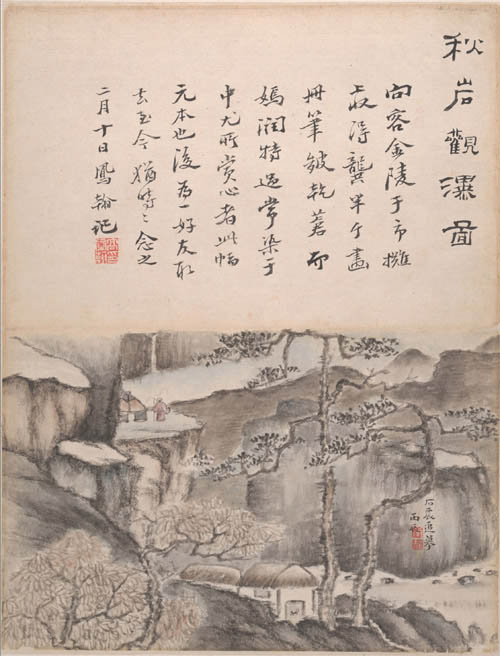 秋岩觀瀑圖
向客金陵于市攤
上收得龔半千畫
册筆皴乾蒼而
嫣潤特過常染于
中尤所賞心者此幅
元本也後為一好友取
去至今猶時〻念之
二月十日鳳翰記
追摹